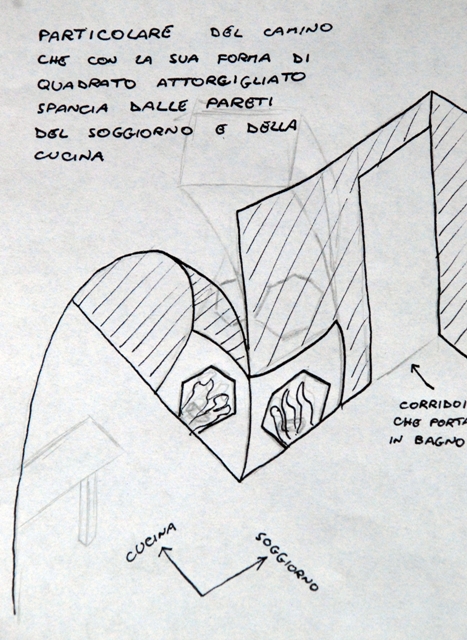 PARTICOLARE DEL CAMINO
CHE CON LA SUA FORMA DI
QUADRATO ATTORGIGLIATO
SPANCIA DALLE PARETI
DEL SOGGIORNO E DELLA
CUCINA
CORRIDOI
CHE PORTA
IN BAGNO
CUCINA
SOGGIORNO